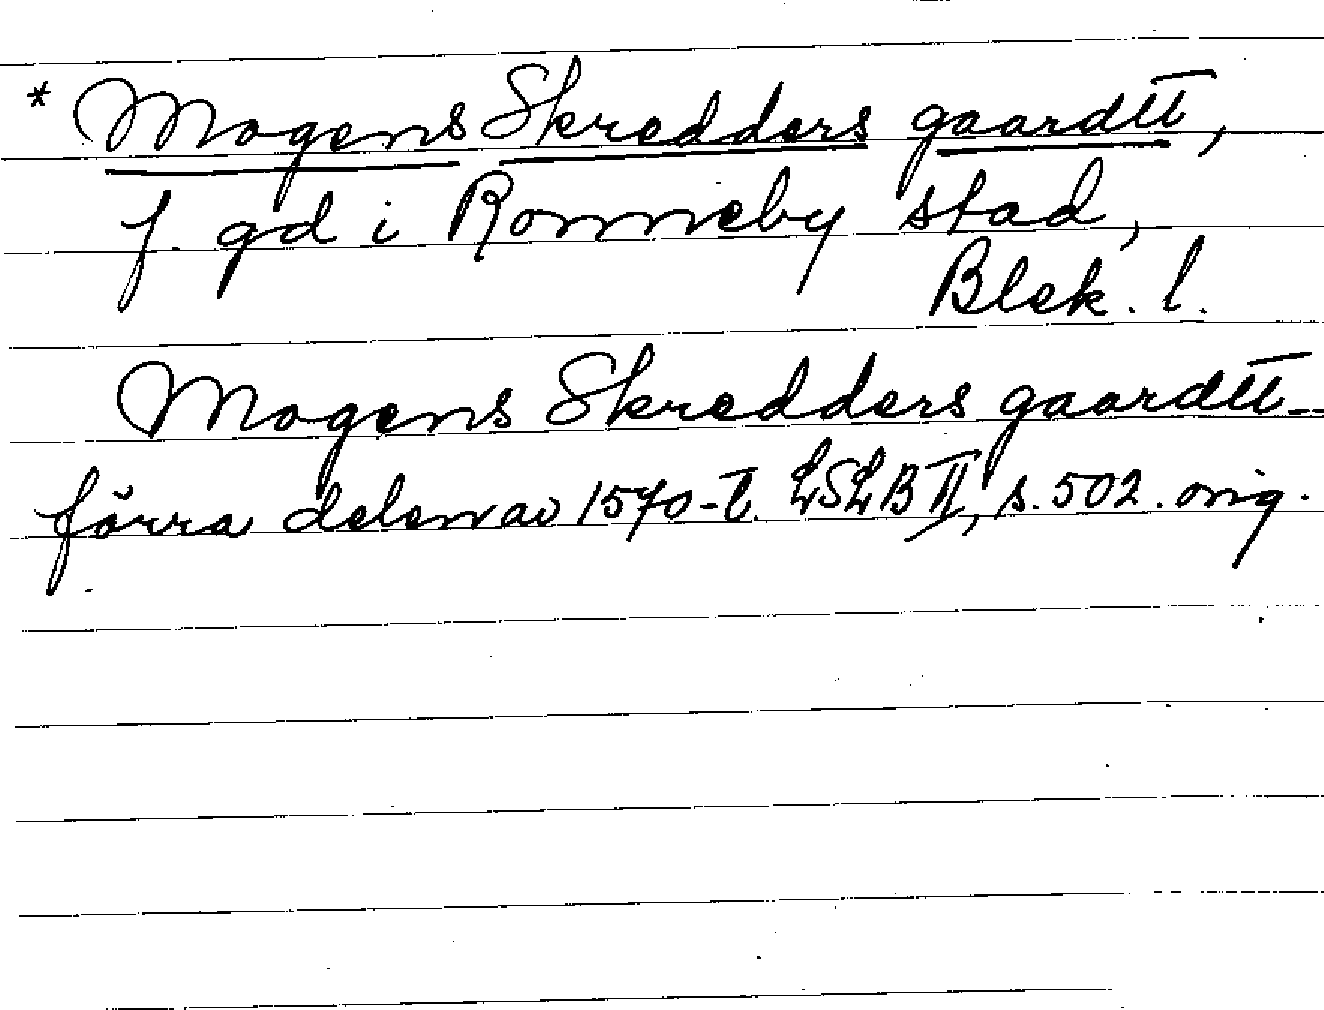 * Mogens Skredders gaardtt,
f. gd i Ronneby stad,
Blek. l.
Mogens Skredders gaardtt
förra delen av 1570-t. LSLB II, s. 502. orig.